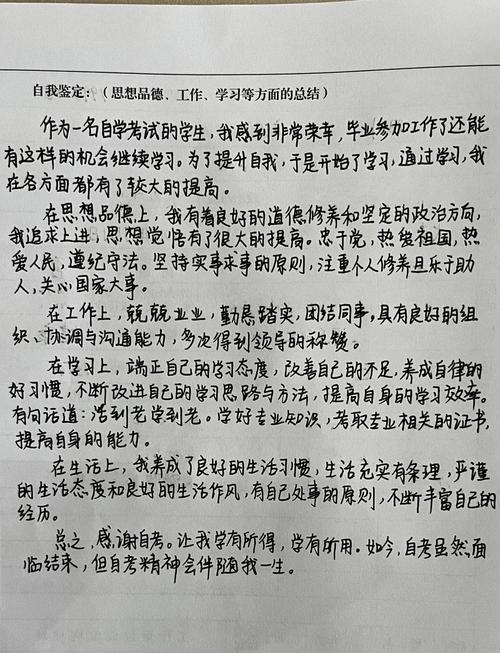 自我鉴定：（思想品德、工作、学习等方面的总结）
作为一名自学考试的学生，我感到非常荣幸，毕业参加工作了还能
有这样的机会继续学习。为了提升自我，于是开始了学习，通过学习，我
在各方面都有了较大的提高。
在思想品德上，我有着良好的道德修养和坚定的政治方向，
我追求上进，思想觉悟有了很大的提高。忠于党，热爱祖国，热
爱人民，遵纪守法。坚持实事求事的原则，注重个人修养且乐于助
人，关心国家大事。
在工作上，兢兢业业，勤恳踏实，团结同事，具有良好的组
织、协调与沟通能力，多次得到领导的称赞。
在学习上，端正自己的学习态度，改善自己的不足，养成自律的
好习惯，不断改进自己的学习思路与方法，提高自身的学习效率。
有句话道：活到老学到老。学好专业知识，考取专业相关的证书，
提高自身的能力。
在生活上，我养成了良好的生活习惯，生活充实有条理，严谨
的生活态度和良好的生活作风，有自己处事的原则，不断丰富自己的
经历。
总之，感谢自考。让我学有所得，学有所用。如今，自考虽然面
临结束，但自考精神会伴随我一生。